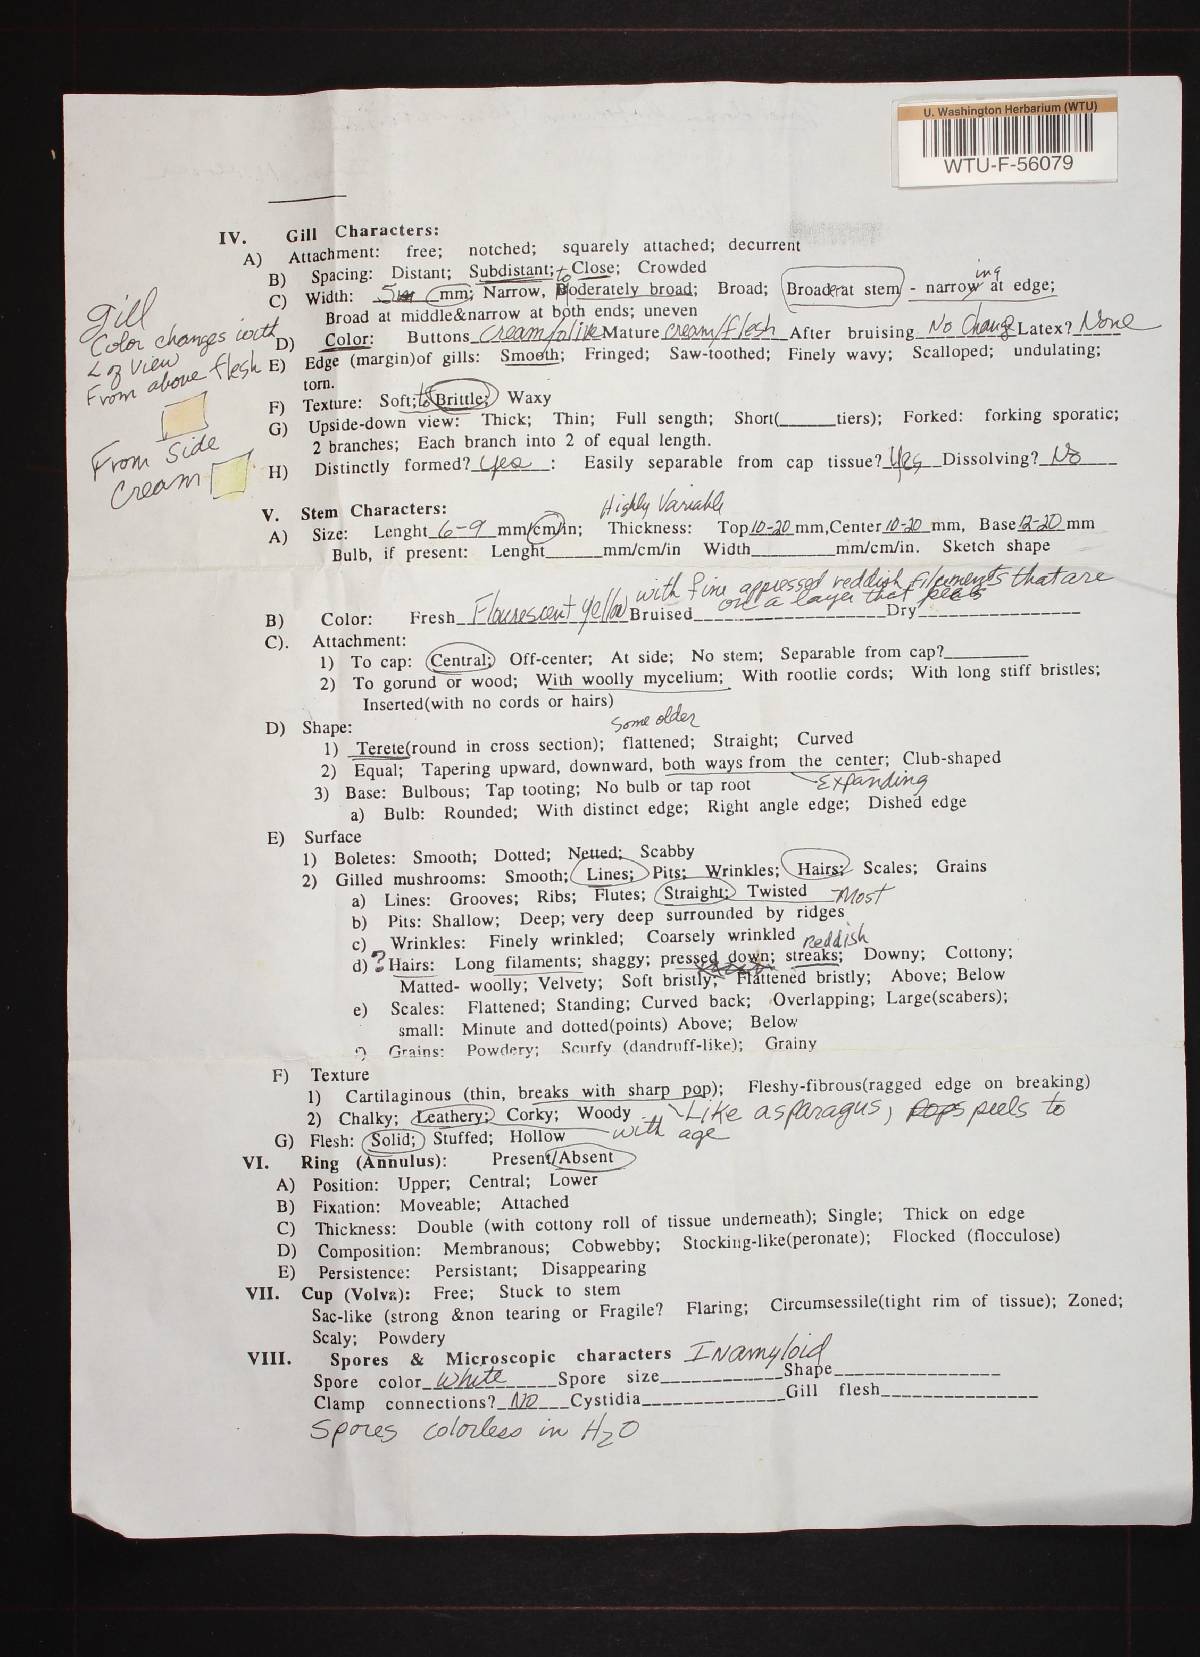 U. Washington Herbarium (WTU)
WTU-F-56079
IV. Gill Characters:
A) Attachment: free; notched; squarely attached; decurrent
B) Spacing: Distant; Subdistant; to Close; Crowded
C) Width: 5 mm; Narrow, Moderately broad; Broad; Broader at stem - narrowing at edge;
Broad at middle&narrow at both ends; uneven
D) Color: Buttons Cream/olive Mature cream/flesh After bruising No Change Latex? None
E) Edge (margin)of gills: Smooth; Fringed; Saw-toothed; Finely wavy; Scalloped; undulating;
torn.
F) Texture: Soft; to Brittle; Waxy
G) Upside-down view: Thick; Thin; Full sength; Short(______tiers); Forked: forking sporatic;
2 branches; Each branch into 2 of equal length.
H) Distinctly formed? Yes : Easily separable from cap tissue? Yes Dissolving? No
gill
Color changes with
∠ of View
From above flesh
From Side
Cream
V. Stem Characters:
Highly Variable
A) Size: Lenght 6-9 mm/cm/in; Thickness: Top 10-20 mm,Center 10-20 mm, Base 12-20 mm
Bulb, if present: Lenght______mm/cm/in Width________mm/cm/in. Sketch shape
with fine appressed reddish filaments that are
on a layer that peels
B) Color: Fresh Flourescent yellow Bruised____________________Dry_________________
C). Attachment:
1) To cap: Central; Off-center; At side; No stem; Separable from cap?_________
2) To gorund or wood; With woolly mycelium; With rootlie cords; With long stiff bristles;
Inserted(with no cords or hairs)
D) Shape:
some older
1) Terete(round in cross section); flattened; Straight; Curved
2) Equal; Tapering upward, downward, both ways from the center; Club-shaped
Expanding
3) Base: Bulbous; Tap tooting; No bulb or tap root
a) Bulb: Rounded; With distinct edge; Right angle edge; Dished edge
E) Surface
1) Boletes: Smooth; Dotted; Netted; Scabby
2) Gilled mushrooms: Smooth; Lines; Pits; Wrinkles; Hairs; Scales; Grains
a) Lines: Grooves; Ribs; Flutes; Straight; Twisted Most
b) Pits: Shallow; Deep; very deep surrounded by ridges
c) Wrinkles: Finely wrinkled; Coarsely wrinkled
Reddish
d) ? Hairs: Long filaments; shaggy; pressed down; streaks; Downy; Cottony;
Matted- woolly; Velvety; Soft bristly; Flattened bristly; Above; Below
e) Scales: Flattened; Standing; Curved back; Overlapping; Large(scabers);
small: Minute and dotted(points) Above; Below
Grains: Powdery; Scurfy (dandruff-like); Grainy
F) Texture
1) Cartilaginous (thin, breaks with sharp pop); Fleshy-fibrous(ragged edge on breaking)
2) Chalky; Leathery; Corky; Woody Like asparagus, peels to
G) Flesh: Solid; Stuffed; Hollow with age
VI. Ring (Annulus): Present/Absent
A) Position: Upper; Central; Lower
B) Fixation: Moveable; Attached
C) Thickness: Double (with cottony roll of tissue underneath); Single; Thick on edge
D) Composition: Membranous; Cobwebby; Stocking-like(peronate); Flocked (flocculose)
E) Persistence: Persistant; Disappearing
VII. Cup (Volva): Free; Stuck to stem
Sac-like (strong &non tearing or Fragile? Flaring; Circumsessile(tight rim of tissue); Zoned;
Scaly; Powdery
VIII. Spores & Microscopic characters Inamyloid
Spore color White Spore size_____________Shape_________________
Clamp connections? No Cystidia_______________Gill flesh________________
Spores colorless in H2O